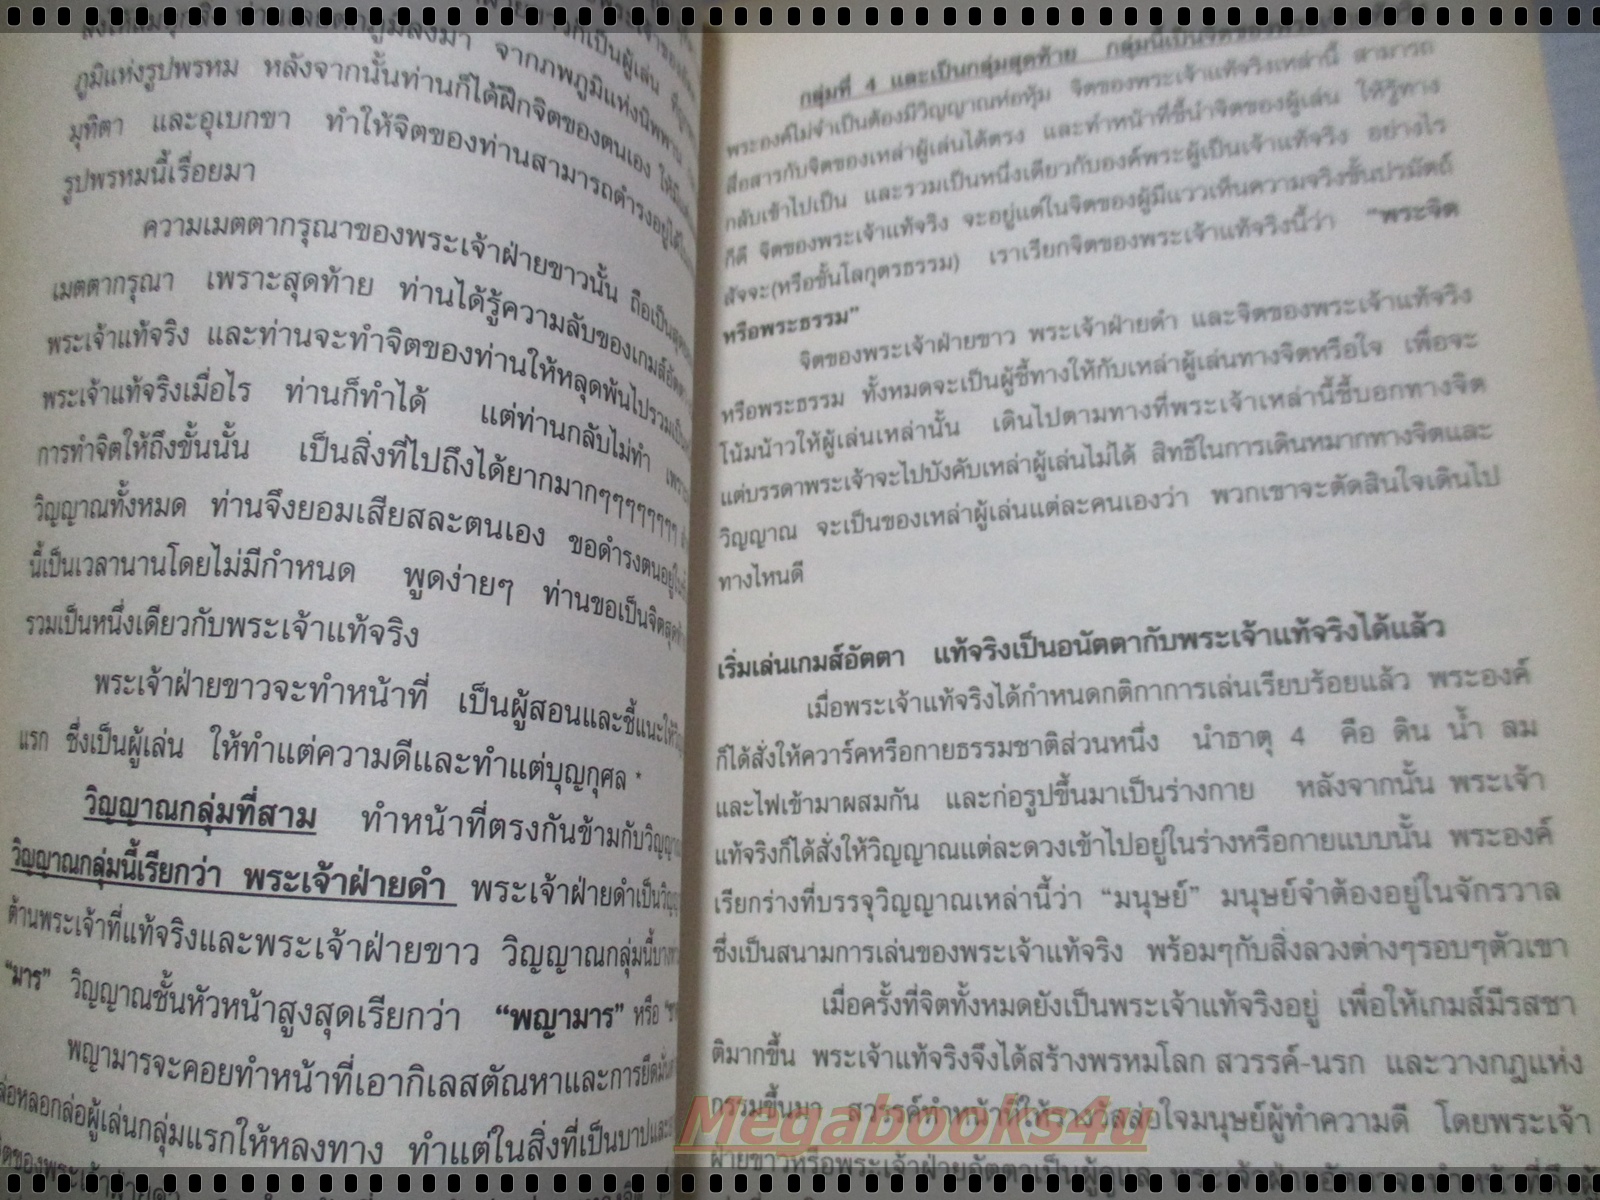 ภูมิแห่งรูปพรหม หลังจากนั้นท่านก็ได้ฝึกจิตของตนเอง ให้มี
มุทิตา และอุเบกขา ทำให้จิตของท่านสามารถดำรงอยู่ได้
รูปพรหมนี้เรื่อยมา
ความเมตตากรุณาของพระเจ้าฝ่ายขาวนั้น ถือเป็น
เมตตากรุณา เพราะสุดท้าย ท่านได้รู้ความลับของเกมส์อัตตา
พระเจ้าแท้จริง และท่านจะทำจิตของท่านให้หลุดพ้นไปรวมเป็น
พระเจ้าแท้จริงเมื่อไร ท่านก็ทำได้ แต่ท่านกลับไม่ทำ เพราะ
การทำจิตให้ถึงขั้นนั้น เป็นสิ่งที่ไปถึงได้ยากมากๆๆๆๆๆๆๆๆ
วิญญาณทั้งหมด ท่านจึงยอมเสียสละตนเอง ขอดำรงตนอยู่
นี้เป็นเวลานานโดยไม่มีกำหนด พูดง่ายๆ ท่านขอเป็นจิตสุดท้าย
รวมเป็นหนึ่งเดียวกับพระเจ้าแท้จริง
พระเจ้าฝ่ายขาวจะทำหน้าที่ เป็นผู้สอนและชี้แนะให้
แรก ซึ่งเป็นผู้เล่น ให้ทำแต่ความดีและทำแต่บุญกุศล *
วิญญาณกลุ่มที่สาม ทำหน้าที่ตรงกันข้ามกับวิญญาณ
วิญญาณกลุ่มนี้เรียกว่า พระเจ้าฝ่ายดำ พระเจ้าฝ่ายดำเป็น
ด้านพระเจ้าที่แท้จริงและพระเจ้าฝ่ายขาว วิญญาณกลุ่มนี้
“มาร” วิญญาณชั้นหัวหน้าสูงสุดเรียกว่า “พญามาร” หรือ
พญามารจะคอยทำหน้าที่เอากิเลสตัณหาและการยึดมั่น
ล่อหลอกล่อผู้เล่นกลุ่มแรกให้หลงทาง ทำแต่ในสิ่งที่เป็นบาปและ
กลุ่มที่ 4 และเป็นกลุ่มสุดท้าย กลุ่มนี้เป็นจิตของพระเจ้าแท้จริง
พระองค์ไม่จำเป็นต้องมีวิญญาณห่อหุ้ม จิตของพระเจ้าแท้จริงเหล่านี้ สามารถ
สื่อสารกับจิตของเหล่าผู้เล่นได้ตรง และทำหน้าที่ชี้นำจิตของผู้เล่น ให้รู้ทาง
กลับเข้าไปเป็น และรวมเป็นหนึ่งเดียวกับองค์พระผู้เป็นเจ้าแท้จริง อย่างไร
ก็ดี จิตของพระเจ้าแท้จริง จะอยู่แต่ในจิตของผู้มีแววเห็นความจริงชั้นปรมัตถ์
สัจจะ(หรือชั้นโลกุตรธรรม) เราเรียกจิตของพระเจ้าแท้จริงนี้ว่า “พระจิต
หรือพระธรรม”
จิตของพระเจ้าฝ่ายขาว พระเจ้าฝ่ายดำ และจิตของพระเจ้าแท้จริง
หรือพระธรรม ทั้งหมดจะเป็นผู้ชี้ทางให้กับเหล่าผู้เล่นทางจิตหรือใจ เพื่อจะ
โน้มน้าวให้ผู้เล่นเหล่านั้น เดินไปตามทางที่พระเจ้าเหล่านี้ชี้บอกทางจิต
แต่บรรดาพระเจ้าจะไปบังคับเหล่าผู้เล่นไม่ได้ สิทธิในการเดินหมากทางจิตและ
วิญญาณ จะเป็นของเหล่าผู้เล่นแต่ละคนเองว่า พวกเขาจะตัดสินใจเดินไป
ทางไหนดี
เริ่มเล่นเกมส์อัตตา แท้จริงเป็นอนัตตากับพระเจ้าแท้จริงได้แล้ว
เมื่อพระเจ้าแท้จริงได้กำหนดกติกาการเล่นเรียบร้อยแล้ว พระองค์
ก็ได้สั่งให้ควาร์คหรือกายธรรมชาติส่วนหนึ่ง นำธาตุ 4 คือ ดิน น้ำ ลม
และไฟเข้ามาผสมกัน และก่อรูปขึ้นมาเป็นร่างกาย หลังจากนั้น พระเจ้า
แท้จริงก็ได้สั่งให้วิญญาณแต่ละดวงเข้าไปอยู่ในร่างหรือกายแบบนั้น พระองค์
เรียกร่างที่บรรจุวิญญาณเหล่านี้ว่า “มนุษย์” มนุษย์จำต้องอยู่ในจักรวาล
ซึ่งเป็นสนามการเล่นของพระเจ้าแท้จริง พร้อมๆกับสิ่งลวงต่างๆรอบๆตัวเขา
เมื่อครั้งที่จิตทั้งหมดยังเป็นพระเจ้าแท้จริงอยู่ เพื่อให้เกมส์มีรสชา
ติมากขึ้น พระเจ้าแท้จริงจึงได้สร้างพรหมโลก สวรรค์-นรก และวางกฎแห่ง
กรรมขึ้นมา สวรรค์ทำหน้าที่ให้รางวัลล่อใจมนุษย์ผู้ทำความดี โดยพระเจ้า
Megabooks4u